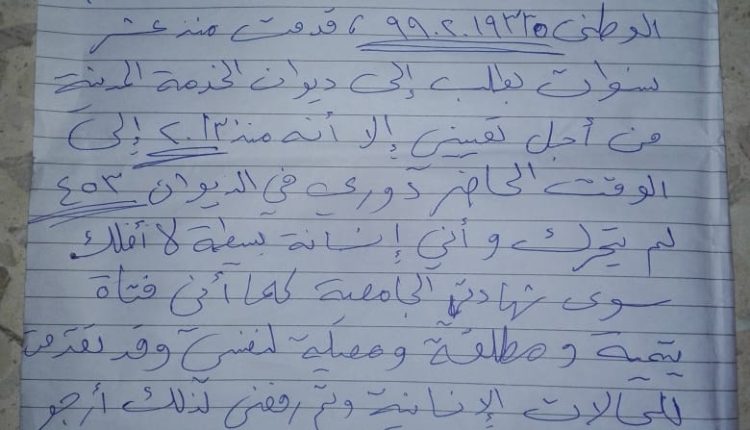 الوطني ٩٩٠٢٠١٩٣٣٥ ، قدمت منذ عشر
سنوات بطلب إلى ديوان الخدمة المدنية
من أجل تعييني إلا أنه منذ ٢٠١٣ إلى
الوقت الحاضر دوري في الديوان ٤٥٣
لم يتحرك وأني إنسانة بسيطة لا أملك
سوى شهادتي الجامعية كما أني فتاة
يتيمة ومطلقة ومعيلة لنفسي وقد تقدمت
للحالات الإنسانية وتم رفضي لذلك أرجو